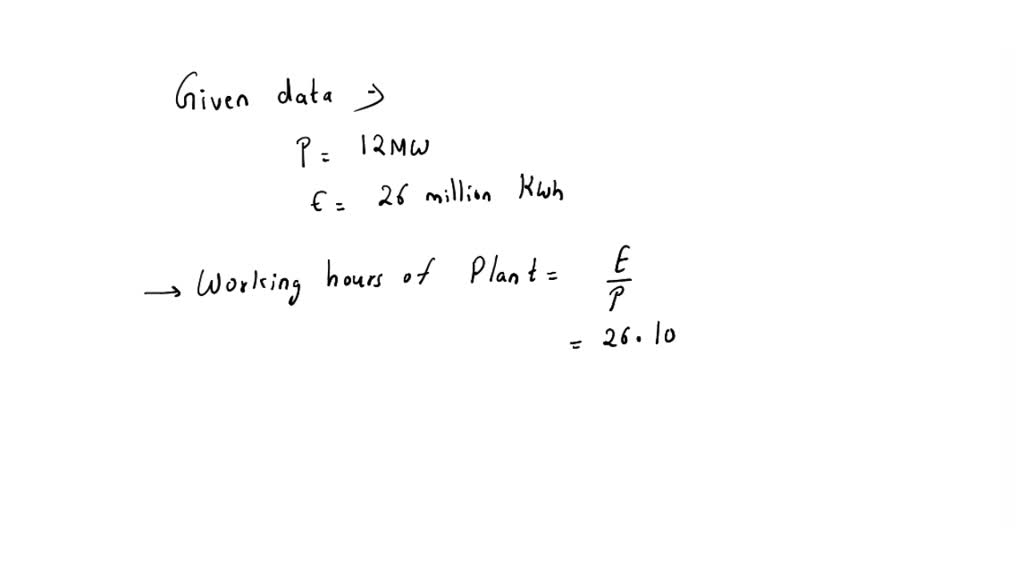 Given data →
P = 12MW
E = 26 million Kwh
→ Working hours of Plant = E/P
= 26.10